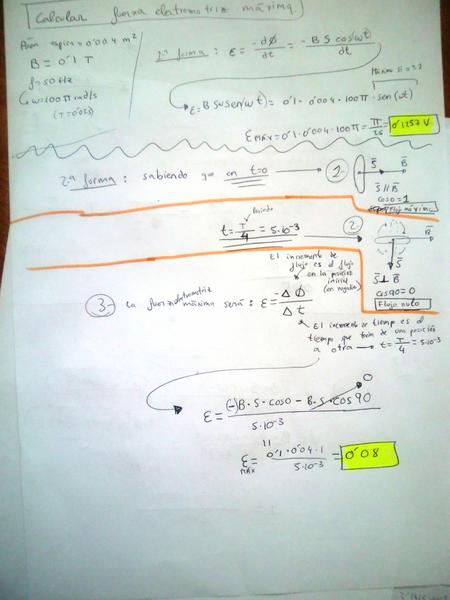 Calcular fuerza eletromotriz máxima.
Área espira = 0'004 m²
B = 0'1 T
f = 50 Hz
ω = 100π rad/s
(T = 0'02s)
1ª forma: ε = -dϕ/dt = -B S cos(ωt)/dt
Máximo si = 1
ε = B S ω sen(ωt) = 0'1 · 0'004 · 100π · sen(ωt)
ε MÁX = 0'1 · 0'004 · 100π = π/25 = 0'1257 V
2ª forma: sabiendo que en t=0 → 1-
S B
S ∥ B
cos0 = 1
Flujo máximo
Periodo
t = T/4 = 5·10⁻³ → 2.
B
S
S ⊥ B
cos90 = 0
Flujo nulo
El incremento de
flujo es el flujo
en la posición
inicial
(en negativo)
3- La fuerza eletromotriz
máxima será: ε = -Δϕ/Δt
El incremento de tiempo es el
tiempo que tarda de una posición
a otra → t = T/4 = 5·10⁻³
0
ε = (-)B·S·cos0 - B·S·cos90 / 5·10⁻³
ε MÁX = 0'1·0'004·1 / 5·10⁻³ = 0'08